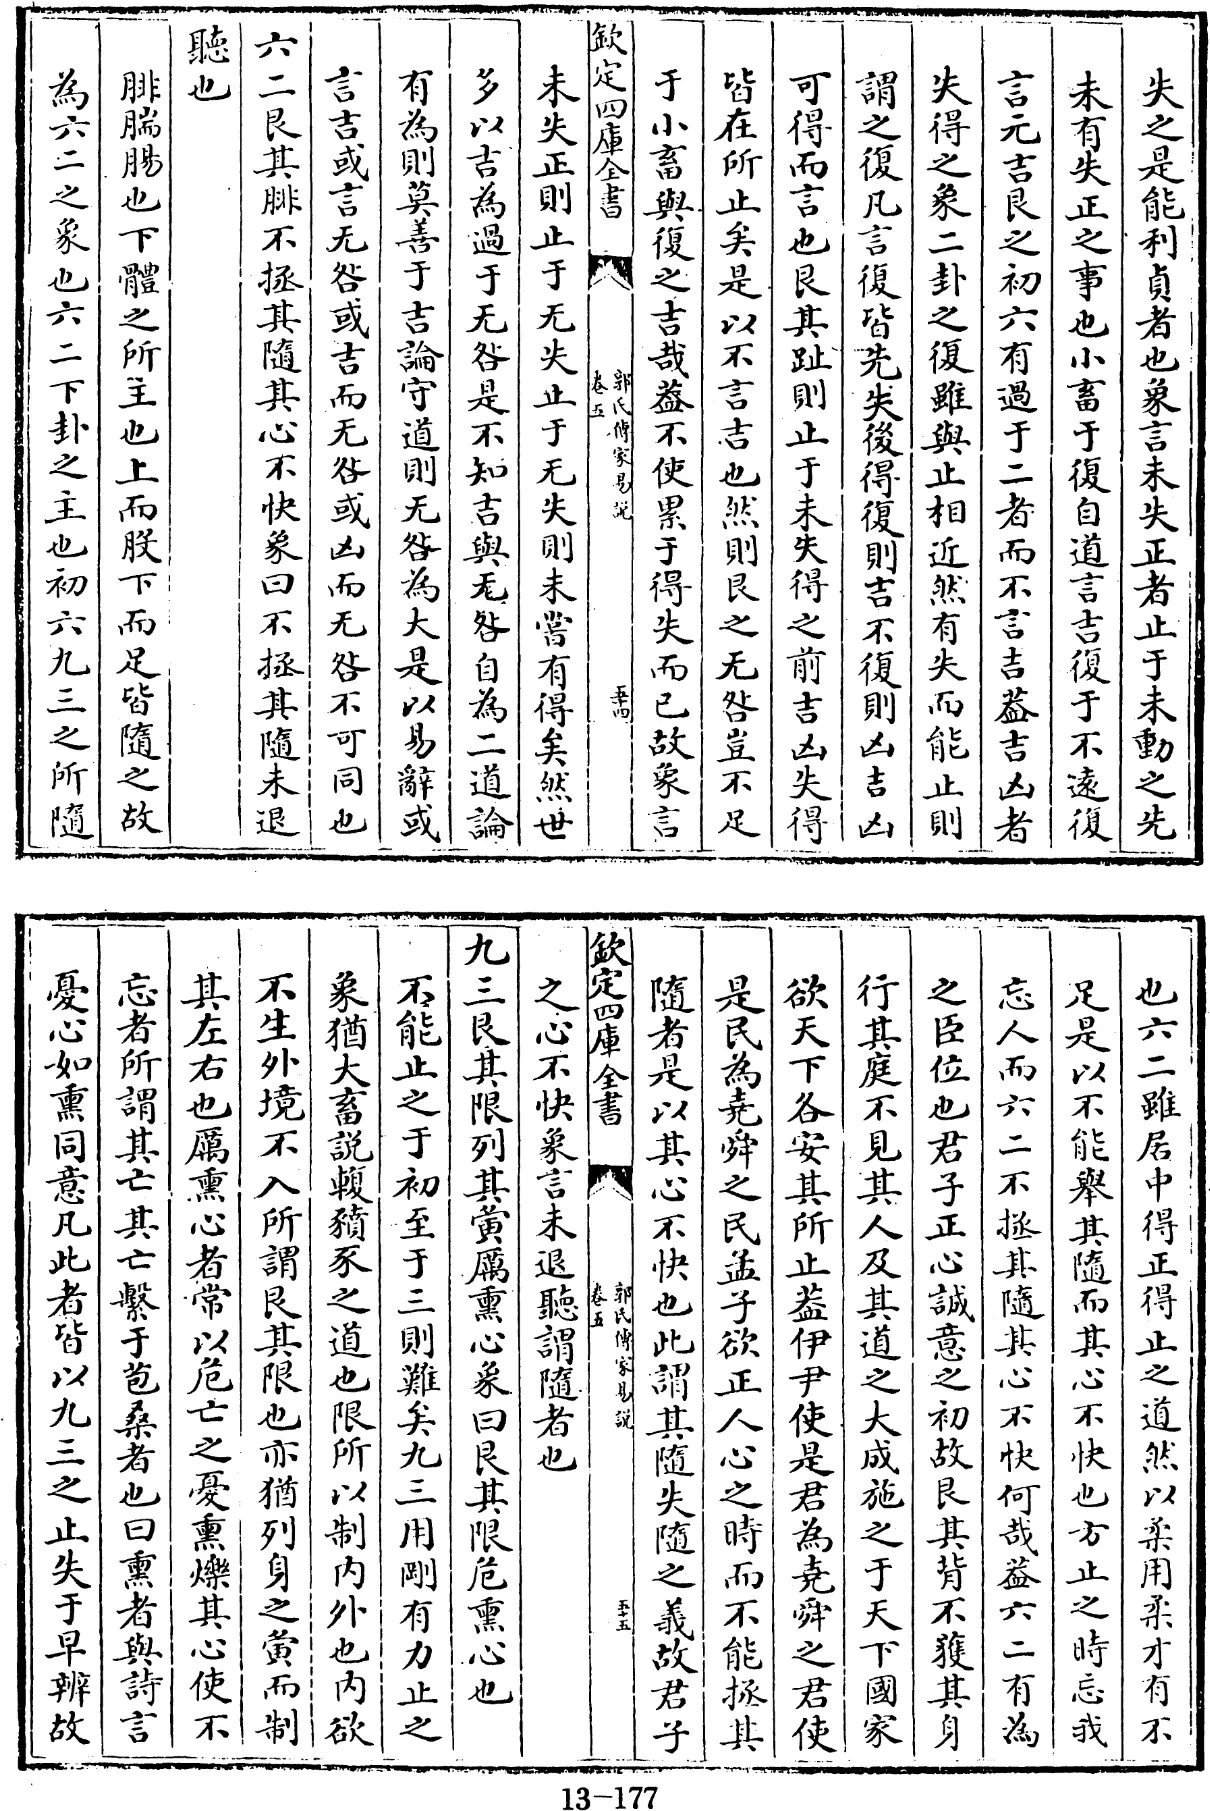 失之是能利貞者也象言未失正者止于未動之先
未有失正之事也小畜于復自道言吉復于不遠復
言元吉艮之初六有過于二者而不言吉葢吉凶者
失得之象二卦之復雖與止相近然有失而能止則
謂之復凡言復皆先失後得復則吉不復則凶吉凶
可得而言也艮其趾則止于未失得之前吉凶失得
皆在所止矣是以不言吉也然則艮之无咎豈不足
于小畜與復之吉哉葢不使累于得失而已故象言
欽定四庫全書
郭氏傳家易說
卷五
五十四
未失正則止于无失止于无失則未嘗有得矣然世
多以吉為過于无咎是不知吉與无咎自為二道論
有為則莫善于吉論守道則无咎為大是以易辭或
言吉或言无咎或吉而无咎或凶而无咎不可同也
六二艮其腓不拯其隨其心不快象曰不拯其隨未退
聽也
腓腨腸也下體之所主也上而股下而足皆隨之故
為六二之象也六二下卦之主也初六九三之所隨
也六二雖居中得正得止之道然以柔用柔才有不
足是以不能舉其隨而其心不快也方止之時忘我
忘人而六二不拯其隨其心不快何哉葢六二有為
之臣位也君子正心誠意之初故艮其背不獲其身
行其庭不見其人及其道之大成施之于天下國家
欲天下各安其所止葢伊尹使是君為堯舜之君使
是民為堯舜之民孟子欲正人心之時而不能拯其
隨者是以其心不快也此謂其隨失隨之義故君子
欽定四庫全書
郭氏傳家易說
卷五
五十五
之心不快象言未退聽謂隨者也
九三艮其限列其夤厲熏心象曰艮其限危熏心也
不能止之于初至于三則難矣九三用剛有力止之
象猶大畜說輹豶豕之道也限所以制內外也內欲
不生外境不入所謂艮其限也亦猶列身之夤而制
其左右也厲熏心者常以危亡之憂熏爍其心使不
忘者所謂其亡其亡繫于苞桑者也曰熏者與詩言
憂心如熏同意凡此者皆以九三之止失于早辨故
13-177